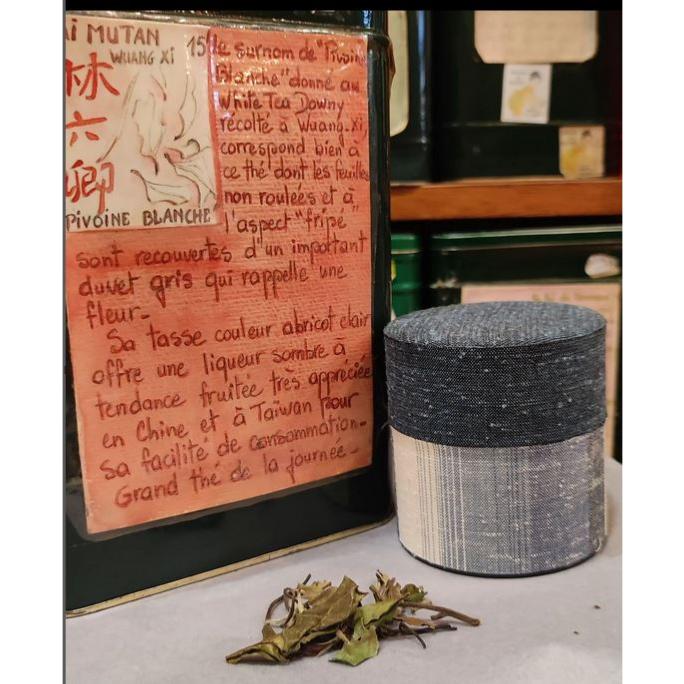 Ai MUTAN
WUANG Xi
林
六
卿
PIVOINE BLANCHE
15
le surnom de "Pivoine
Blanche" donné au
White Tea Downy
récolté à Wuang-Xi,
correspond bien à
ce thé dont les feuilles
non roulées et à
l'aspect "fripé"
sont recouvertes d'un important
duvet gris qui rappelle une
fleur-
Sa tasse couleur abricot clair
offre une liqueur sombre à
tendance fruitée très appréciée
en Chine et à Taïwan pour
sa facilité de consommation-
Grand thé de la journée-